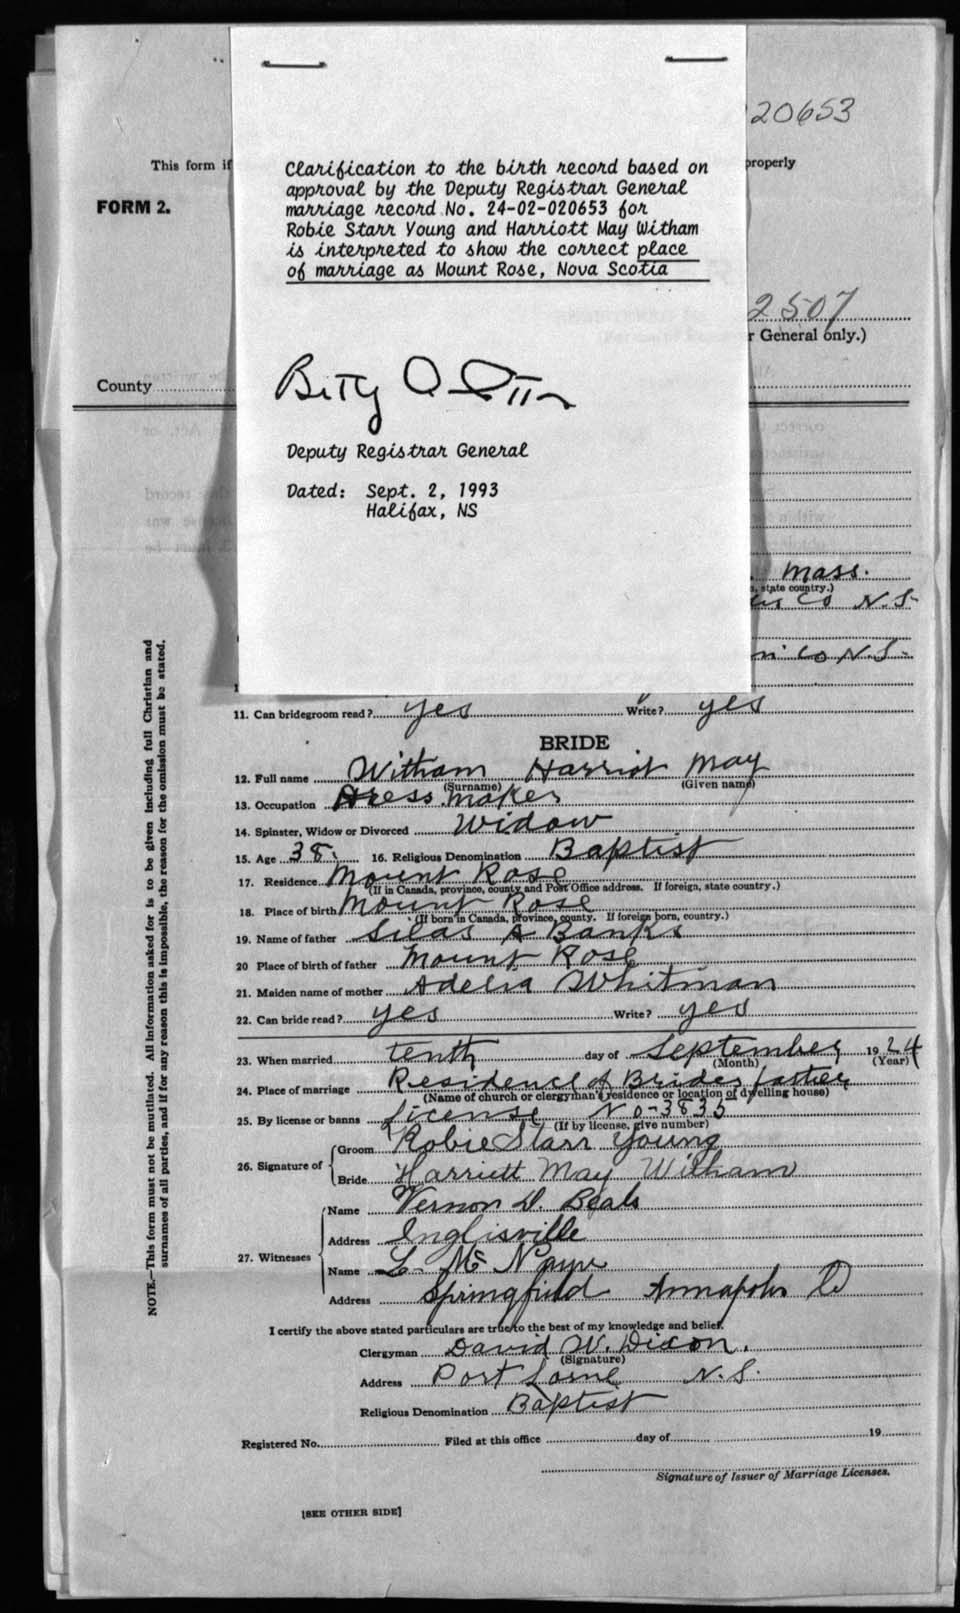 20653
This form if
properly
FORM 2.
Clarification to the birth record based on
approval by the Deputy Registrar General
marriage record No. 24-02-020653 for
Robie Starr Young and Harriott May Witham
is interpreted to show the correct place
of marriage as Mount Rose, Nova Scotia
2507
r General only.)
County
Deputy Registrar General
Dated: Sept. 2, 1993
Halifax, NS
Mass.
state country.)
Co N.S.
Co N.S.
11. Can bridegroom read? yes Write? yes
BRIDE
12. Full name Witham Harriot May
(Surname) (Given name)
13. Occupation Dress maker
14. Spinster, Widow or Divorced Widow
15. Age 38. 16. Religious Denomination Baptist
17. Residence Mount Rose
(If in Canada, province, county and Post Office address. If foreign, state country.)
18. Place of birth Mount Rose
(If born in Canada, province, county. If foreign born, country.)
19. Name of father Silas A Banks
20 Place of birth of father Mount Rose
21. Maiden name of mother Adelia Whitman
22. Can bride read? yes Write? yes
23. When married tenth day of September 1924
(Month) (Year)
24. Place of marriage Residence of Brides father
(Name of church or clergyman's residence or location of dwelling house)
25. By license or banns License No-3835
(If by license, give number)
26. Signature of
Groom Robie Starr Young
Bride Harriett May Witham
27. Witnesses
Name Vernon D. Beals
Address Inglisville
Name L. Mc Nayre
Address Springfield Annapolis Co
I certify the above stated particulars are true to the best of my knowledge and belief.
Clergyman David W. Dixon.
(Signature)
Address Port Lorne N.S.
Religious Denomination Baptist
Registered No. Filed at this office day of 19
Signature of Issuer of Marriage Licenses.
[SEE OTHER SIDE]
NOTE.—This form must not be mutilated. All information asked for is to be given including full Christian and
surnames of all parties, and if for any reason this is impossible, the reason for the omission must be stated.